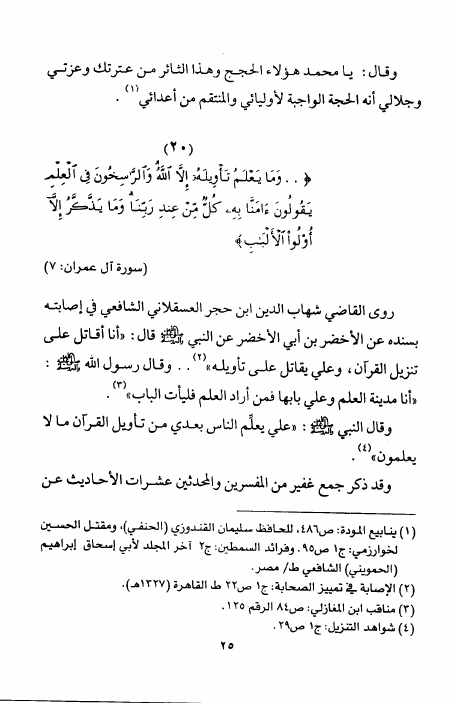 وقال: يا محمد هؤلاء الحجج وهذا الثائر من عترتك وعزتي
وجلالي أنه الحجة الواجبة لأوليائي والمنتقم من أعدائي(١).
(٢٠)
﴿.. وَمَا يَعْلَمُ تَأْوِيلَهُۥٓ إِلَّا ٱللَّهُ وَٱلرَّٰسِخُونَ فِى ٱلْعِلْمِ
يَقُولُونَ ءَامَنَّا بِهِۦ كُلٌّ مِّنْ عِندِ رَبِّنَا وَمَا يَذَّكَّرُ إِلَّآ
أُو۟لُوا۟ ٱلْأَلْبَٰبِ﴾
(سورة آل عمران: ٧)
روى القاضي شهاب الدين ابن حجر العسقلاني الشافعي في إصابته
بسنده عن الأخضر بن أبي الأخضر عن النبي ﷺ قال: «أنا أقاتل على
تنزيل القرآن، وعلي يقاتل على تأويله»(٢).. وقال رسول الله ﷺ:
«أنا مدينة العلم وعلي بابها فمن أراد العلم فليأت الباب»(٣).
وقال النبي ﷺ: «علي يعلّم الناس بعدي من تأويل القرآن ما لا
يعلمون»(٤).
وقد ذكر جمع غفير من المفسرين والمحدثين عشرات الأحاديث عن
(١) ينابيع المودة: ص٤٨٦، للحافظ سليمان القندوزي (الحنفي)، ومقتل الحسين
لخوارزمي: ج١ ص٩٥. وفرائد السمطين: ج٢ آخر المجلد لأبي إسحاق إبراهيم
(الحمويني) الشافعي ط/ مصر.
(٢) الإصابة في تمييز الصحابة: ج١ ص٢٢ ط القاهرة (١٣٢٧هـ).
(٣) مناقب ابن المغازلي: ص٨٤ الرقم ١٢٥.
(٤) شواهد التنزيل: ج١ ص٢٩.
٢٥